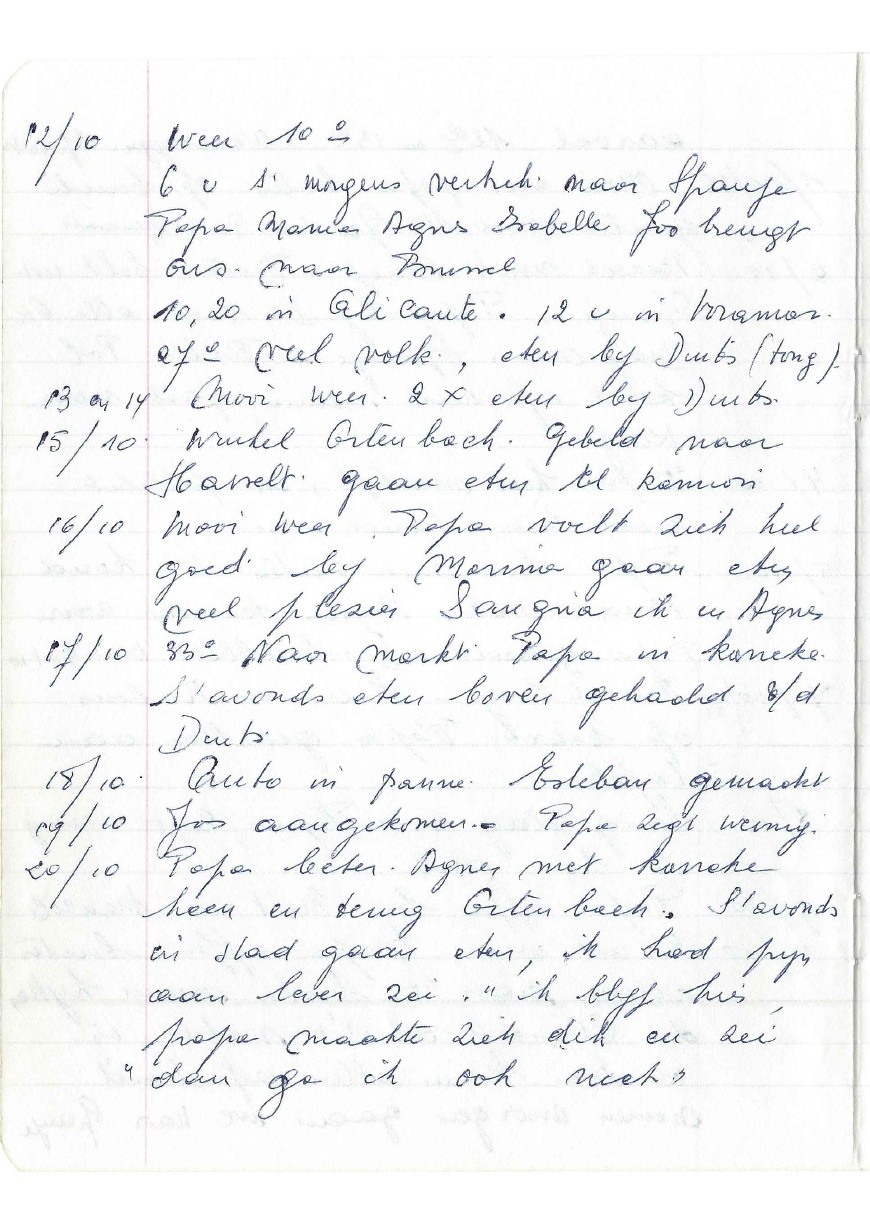 12/10 Weer 10°
6 u s'morgens vertrek naar Spanje
Papa Mama Agnes Isabelle Jos brengt
ons. naar Brussel
10,20 in Alicante. 12 u in
27° veel volk, eten by Duits (tong).
13 en 14 Mooi weer. 2 x eten by Duits.
15/10. Winkel Ortenbach. Gebeld naar
Hasselt. gaan eten El
16/10 Mooi weer. Papa voelt zich heel
goed by Marina gaan eten
veel plezier Sangria ik en Agnes
17/10 33° Naar markt. Papa in karreke.
S'avonds eten boven gehaald b/d
Duits.
18/10. Auto in panne. Esteban gemaakt
19/10 Jos aangekomen. Papa zegt weinig.
20/10 Papa beter. Agnes met karreke
heen en terug Ortenbach. S'avonds
in stad gaan eten, ik had pyn
aan lever zei. "ik blyf hier,
papa maakte zich dik en zei
" dan ga ik ook niet"